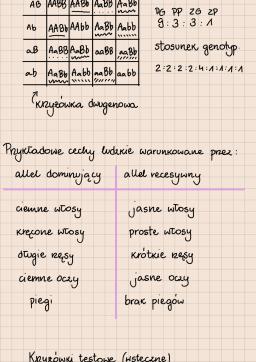 AB AABB AABb AaBB AaBb
Ab AABb AAbb AaBb Aabb
aB AaBB AaBb aaBB aaBb
ab AaBb Aabb aaBb aabb
DG PP ZG ZP
9 : 3 : 3 : 1
stosunek genotyp.
2:2:2:2:4:1:1:1:1
krzyżówka dwugenowa
Przykładowe cechy ludzkie warunkowane przez:
allel dominujący allel recesywny
ciemne włosy jasne włosy
kręcone włosy proste włosy
długie rzęsy krótkie rzęsy
ciemne oczy jasne oczy
piegi brak piegów
Krzyżówki testowe (wsteczne)